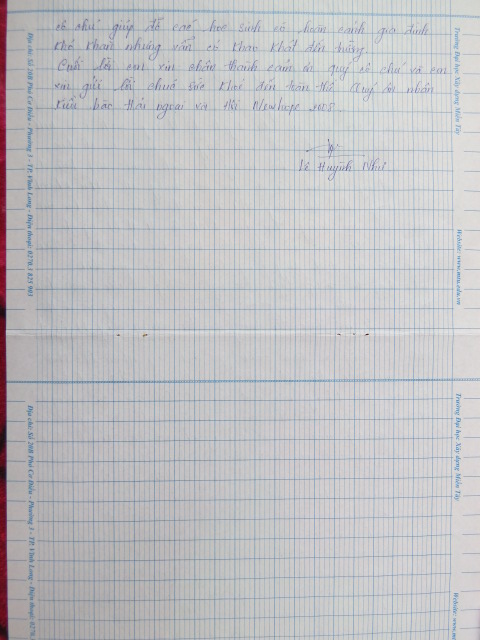 cô chú giúp đỡ các học sinh có hoàn cảnh gia đình
khó khăn nhưng vẫn có khao khát đến trường.
Cuối lời em xin chân thành cảm ơn quý cô chú và em
xin gửi lời chúc sức khỏe đến toàn thể Quý ân nhân
kiều bào Hải ngoại và Hội Newhope 2005.
Lê Huỳnh Như
Trường Đại học Xây dựng Miền Tây
Website: www.mtu.edu.vn
Địa chỉ: Số 20B Phó Cơ Điều - Phường 3 - TP. Vĩnh Long - Điện thoại: 0270.3 825 903
Trường Đại học Xây dựng Miền Tây
Website: www.m
Địa chỉ: Số 20B Phó Cơ Điều - Phường 3 - TP. Vĩnh Long - Điện thoại: 0270.